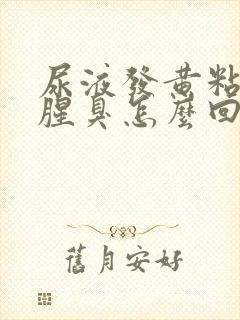 尿液發黃粘
腥臭怎麼回
舊月安好